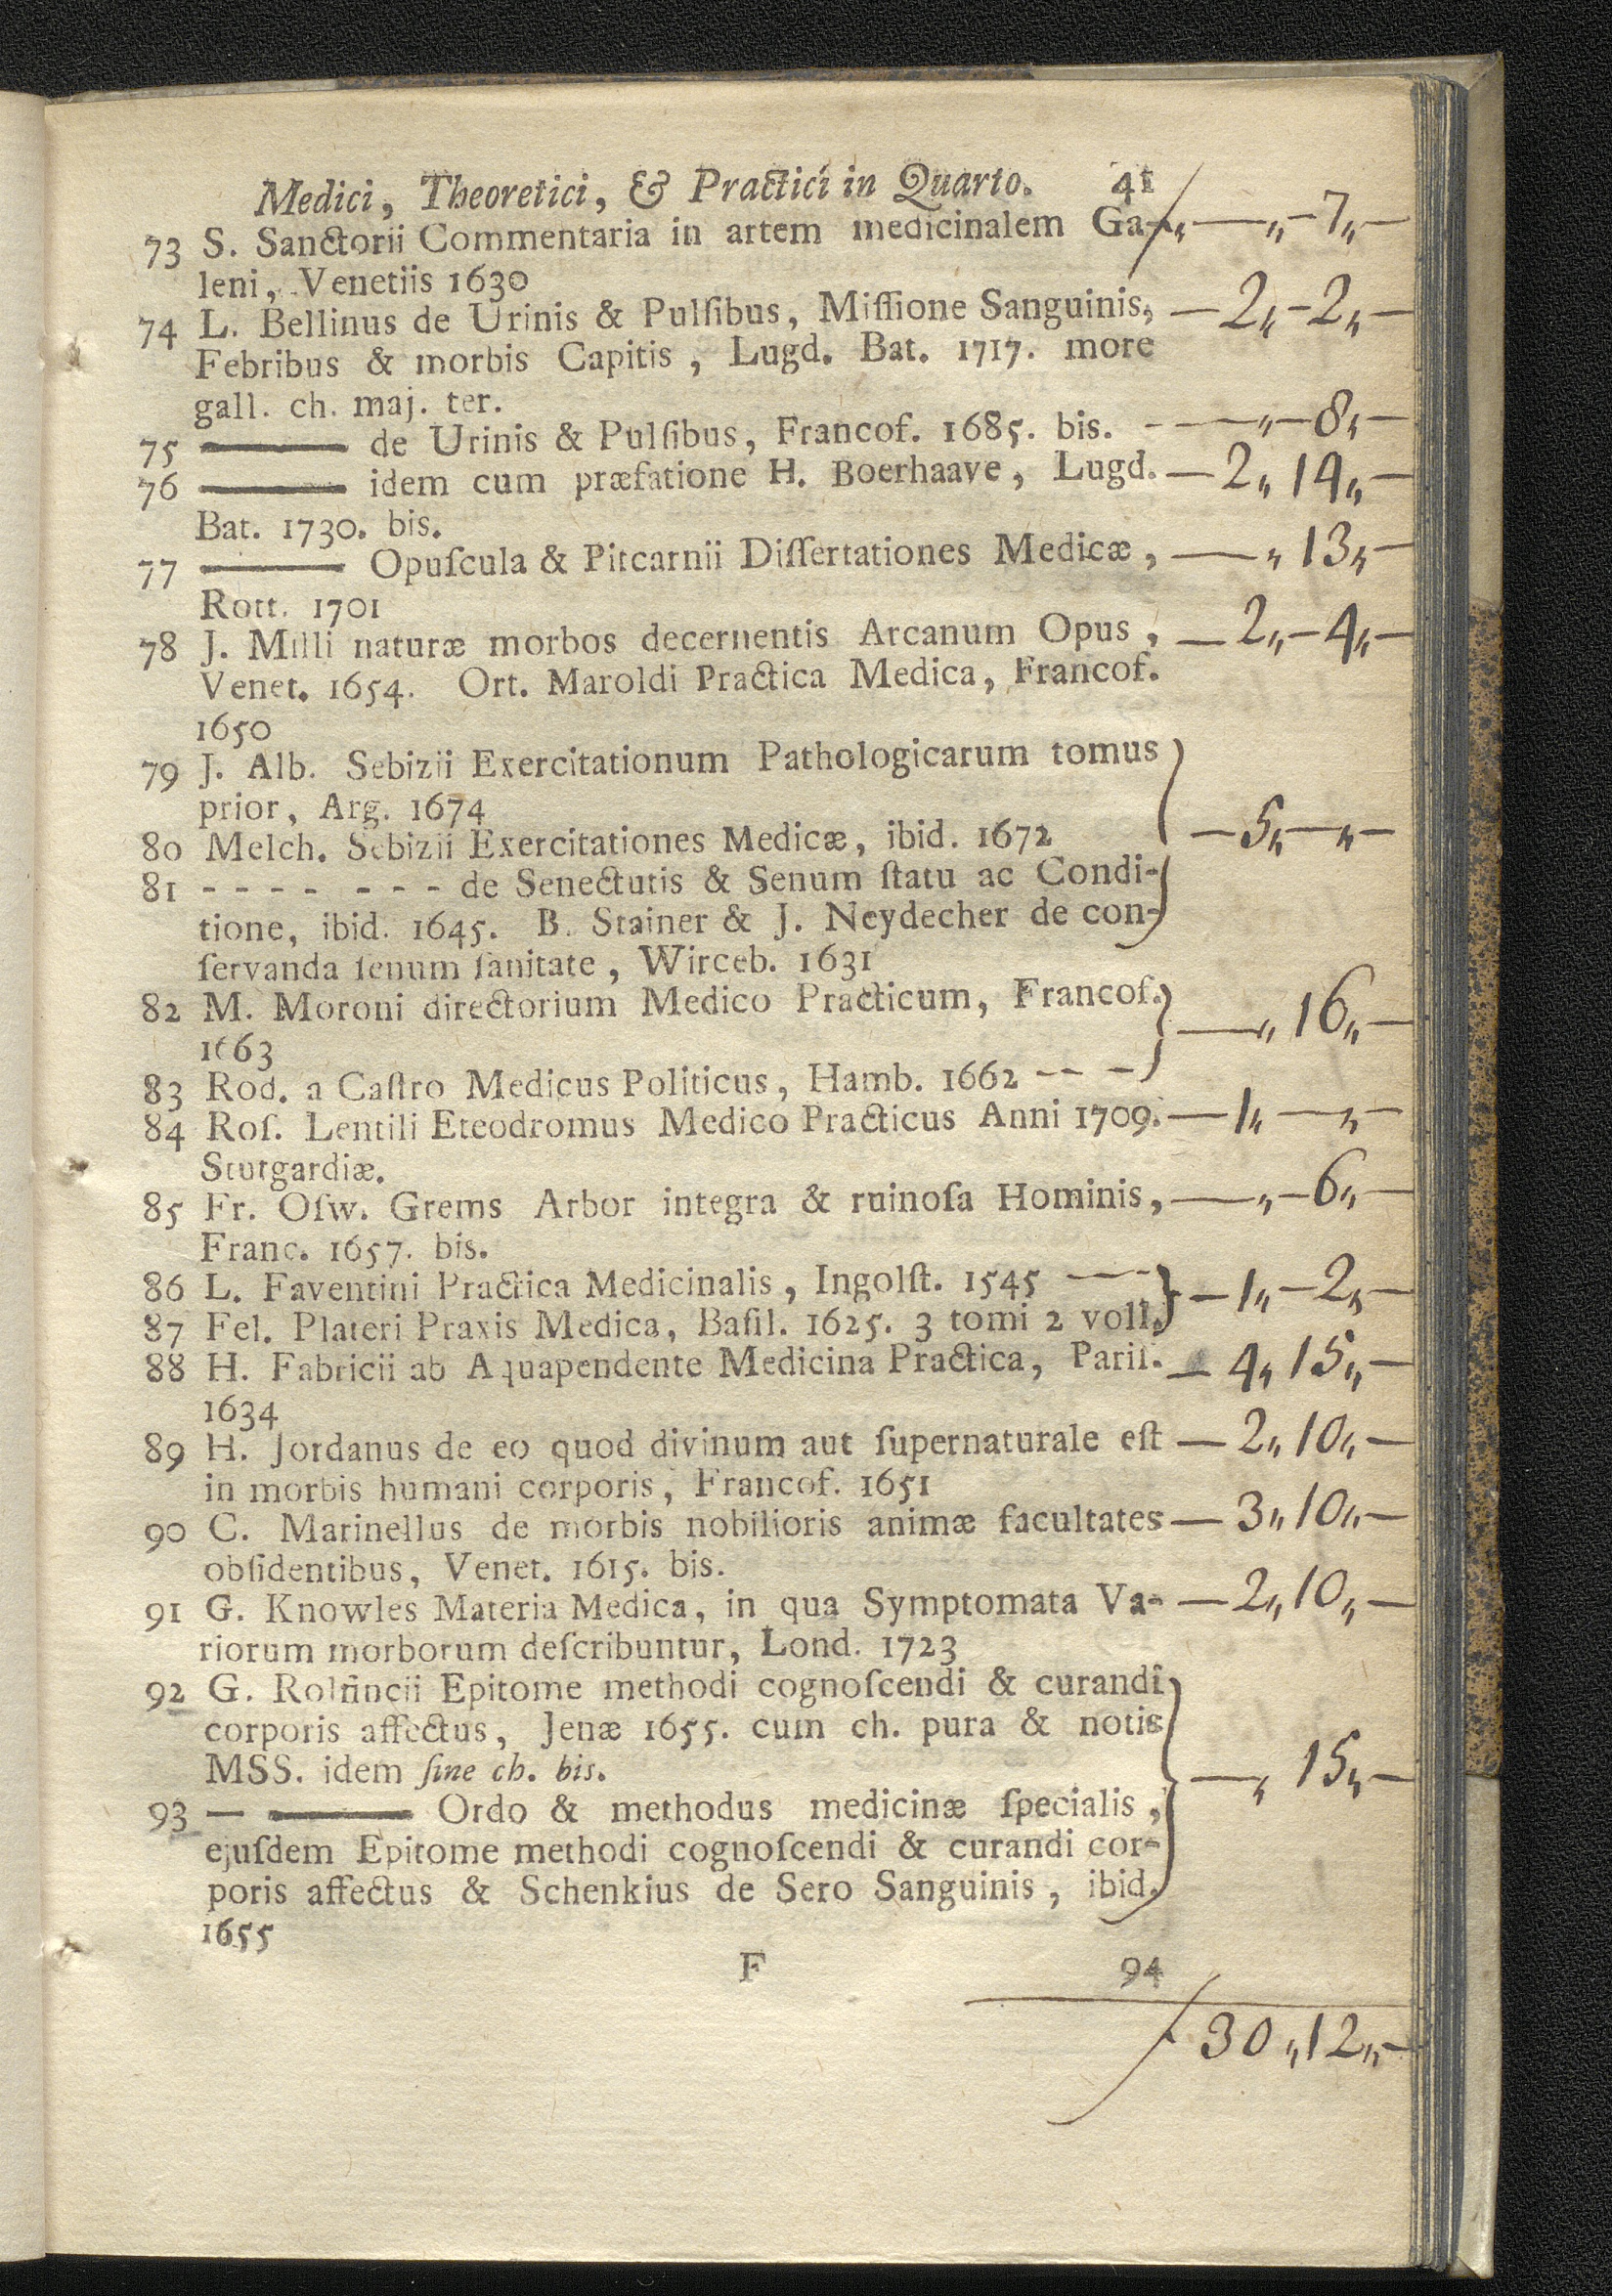 Medici, Theoretici, & Practici in Quarto. 41
73 S. Sanctorii Commentaria in artem medicinalem Ga- „ — „ – 7 „ —
leni, Venetiis 1630
74 L. Bellinus de Urinis & Pulſibus, Miſſione Sanguinis, — 2 „ – 2 „ —
Febribus & morbis Capitis, Lugd. Bat. 1717. more
gall. ch. maj. ter.
75 ——— de Urinis & Pulſibus, Francof. 1685. bis. - — „ — 8 „ —
76 ——— idem cum præfatione H. Boerhaave, Lugd. — 2 „ 14 „ —
Bat. 1730. bis.
77 ——— Opuſcula & Pitcarnii Diſſertationes Medicæ, — „ 13 „ —
Rott. 1701
78 J. Milli naturæ morbos decernentis Arcanum Opus, — 2 „ – 4 „ —
Venet. 1654. Ort. Maroldi Practica Medica, Francof.
1650
79 J. Alb. Sebizii Exercitationum Pathologicarum tomus
prior, Arg. 1674
80 Melch. Sebizii Exercitationes Medicæ, ibid. 1672 — 5 „ — „ —
81 - - - - - - - de Senectutis & Senum ſtatu ac Condi-
tione, ibid. 1645. B. Stainer & J. Neydecher de con-
ſervanda ſenum ſanitate, Wirceb. 1631
82 M. Moroni directorium Medico Practicum, Francof. — „ 16 „ —
1663
83 Rod. a Caſtro Medicus Politicus, Hamb. 1662 -- -
84 Roſ. Lentili Eteodromus Medico Practicus Anni 1709. — 1 „ — „ —
Stutgardiæ.
85 Fr. Oſw. Grems Arbor integra & ruinoſa Hominis, — „ – 6 „ —
Franc. 1657. bis.
86 L. Faventini Practica Medicinalis, Ingolſt. 1545 --- — 1 „ – 2 „ —
87 Fel. Plateri Praxis Medica, Baſil. 1625. 3 tomi 2 voll.
88 H. Fabricii ab Aquapendente Medicina Practica, Pariſ. — 4 „ 15 „ —
1634
89 H. Jordanus de eo quod divinum aut ſupernaturale eſt — 2 „ 10 „ —
in morbis humani corporis, Francof. 1651
90 C. Marinellus de morbis nobilioris animæ facultates — 3 „ 10 „ —
obſidentibus, Venet. 1615. bis.
91 G. Knowles Materia Medica, in qua Symptomata Va- — 2 „ 10 „ —
riorum morborum deſcribuntur, Lond. 1723
92 G. Rolfincii Epitome methodi cognoſcendi & curandi
corporis affectus, Jenæ 1655. cum ch. pura & notis
MSS. idem ſine ch. bis. — „ 15 „ —
93 — ——— Ordo & methodus medicinæ ſpecialis,
ejuſdem Epitome methodi cognoſcendi & curandi cor-
poris affectus & Schenkius de Sero Sanguinis, ibid.
1655
F 94
30 „ 12 „ —